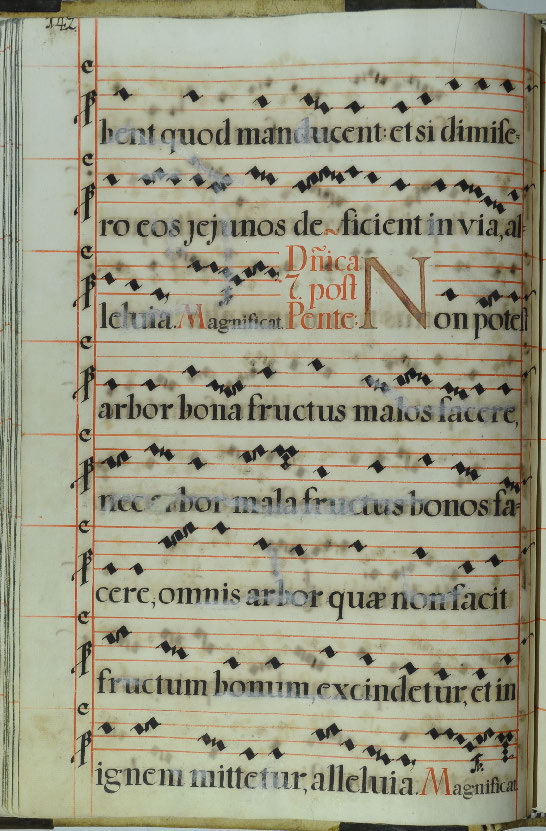 142
bent quod manducent: et si dimise=
ro eos jejunos de~ficient in via, al=
leluia. Magnificat. Dñica 7. post Pente: Non potest
arbor bona fructus malos facere,
nec arbor mala fructus bonos fa=
cere, omnis arbor quæ non facit
fructum bonum, excindetur, et in
ignem mittetur, alleluia. Magnificat.